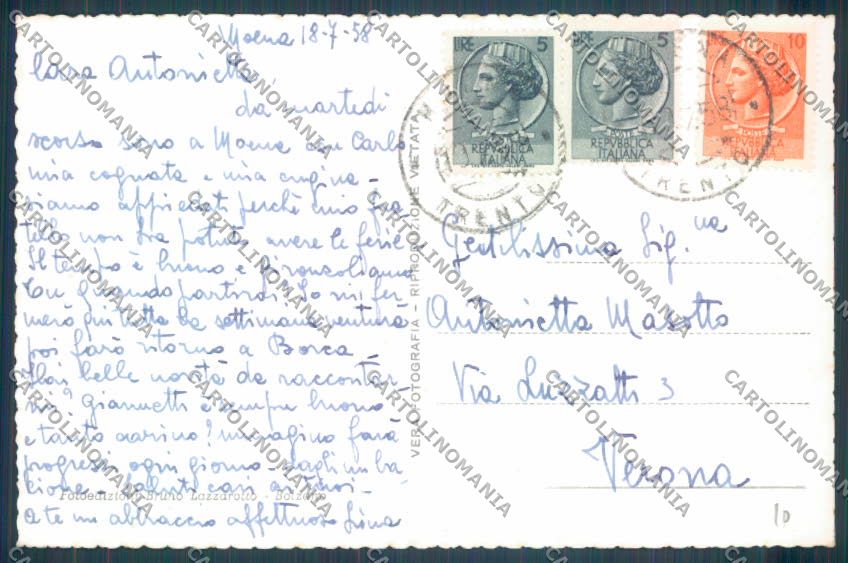 Moena 18-7-58
Cara Antonietta
da martedì
scorso sono a Moena con Carlo
mia cognata e mia cugina -
siamo perchè mio fra
tello non ha potuto avere le ferie.
Il tempo è buono e gironzoliamo.
Tu quando partirai? Io mi fer
merò qui tutta la settimana ventura
poi farò ritorno a Borca -
Hai belle novità da raccontar
mi? Giannetti è sempre buono
e tanto carino? immagino farà
progressi ogni giorno - dagli un ba
cione - Saluti cari ai tuoi -
a te un abbraccio affettuoso Lina
Fotoedizioni Bruno Lazzarotto - Bolzano
VERA FOTOGRAFIA - RIPRODUZIONE VIETATA
LIRE 5
REPVBBLICA
ITALIANA
LIRE 5
REPVBBLICA
ITALIANA
10
REPVBBLICA
ITALIANA
TRENTO
TRENTO
Gentilissima Sig.na
Antonietta Masotto
Via Luzzatti 3
Verona
10
CARTOLINOMANIA